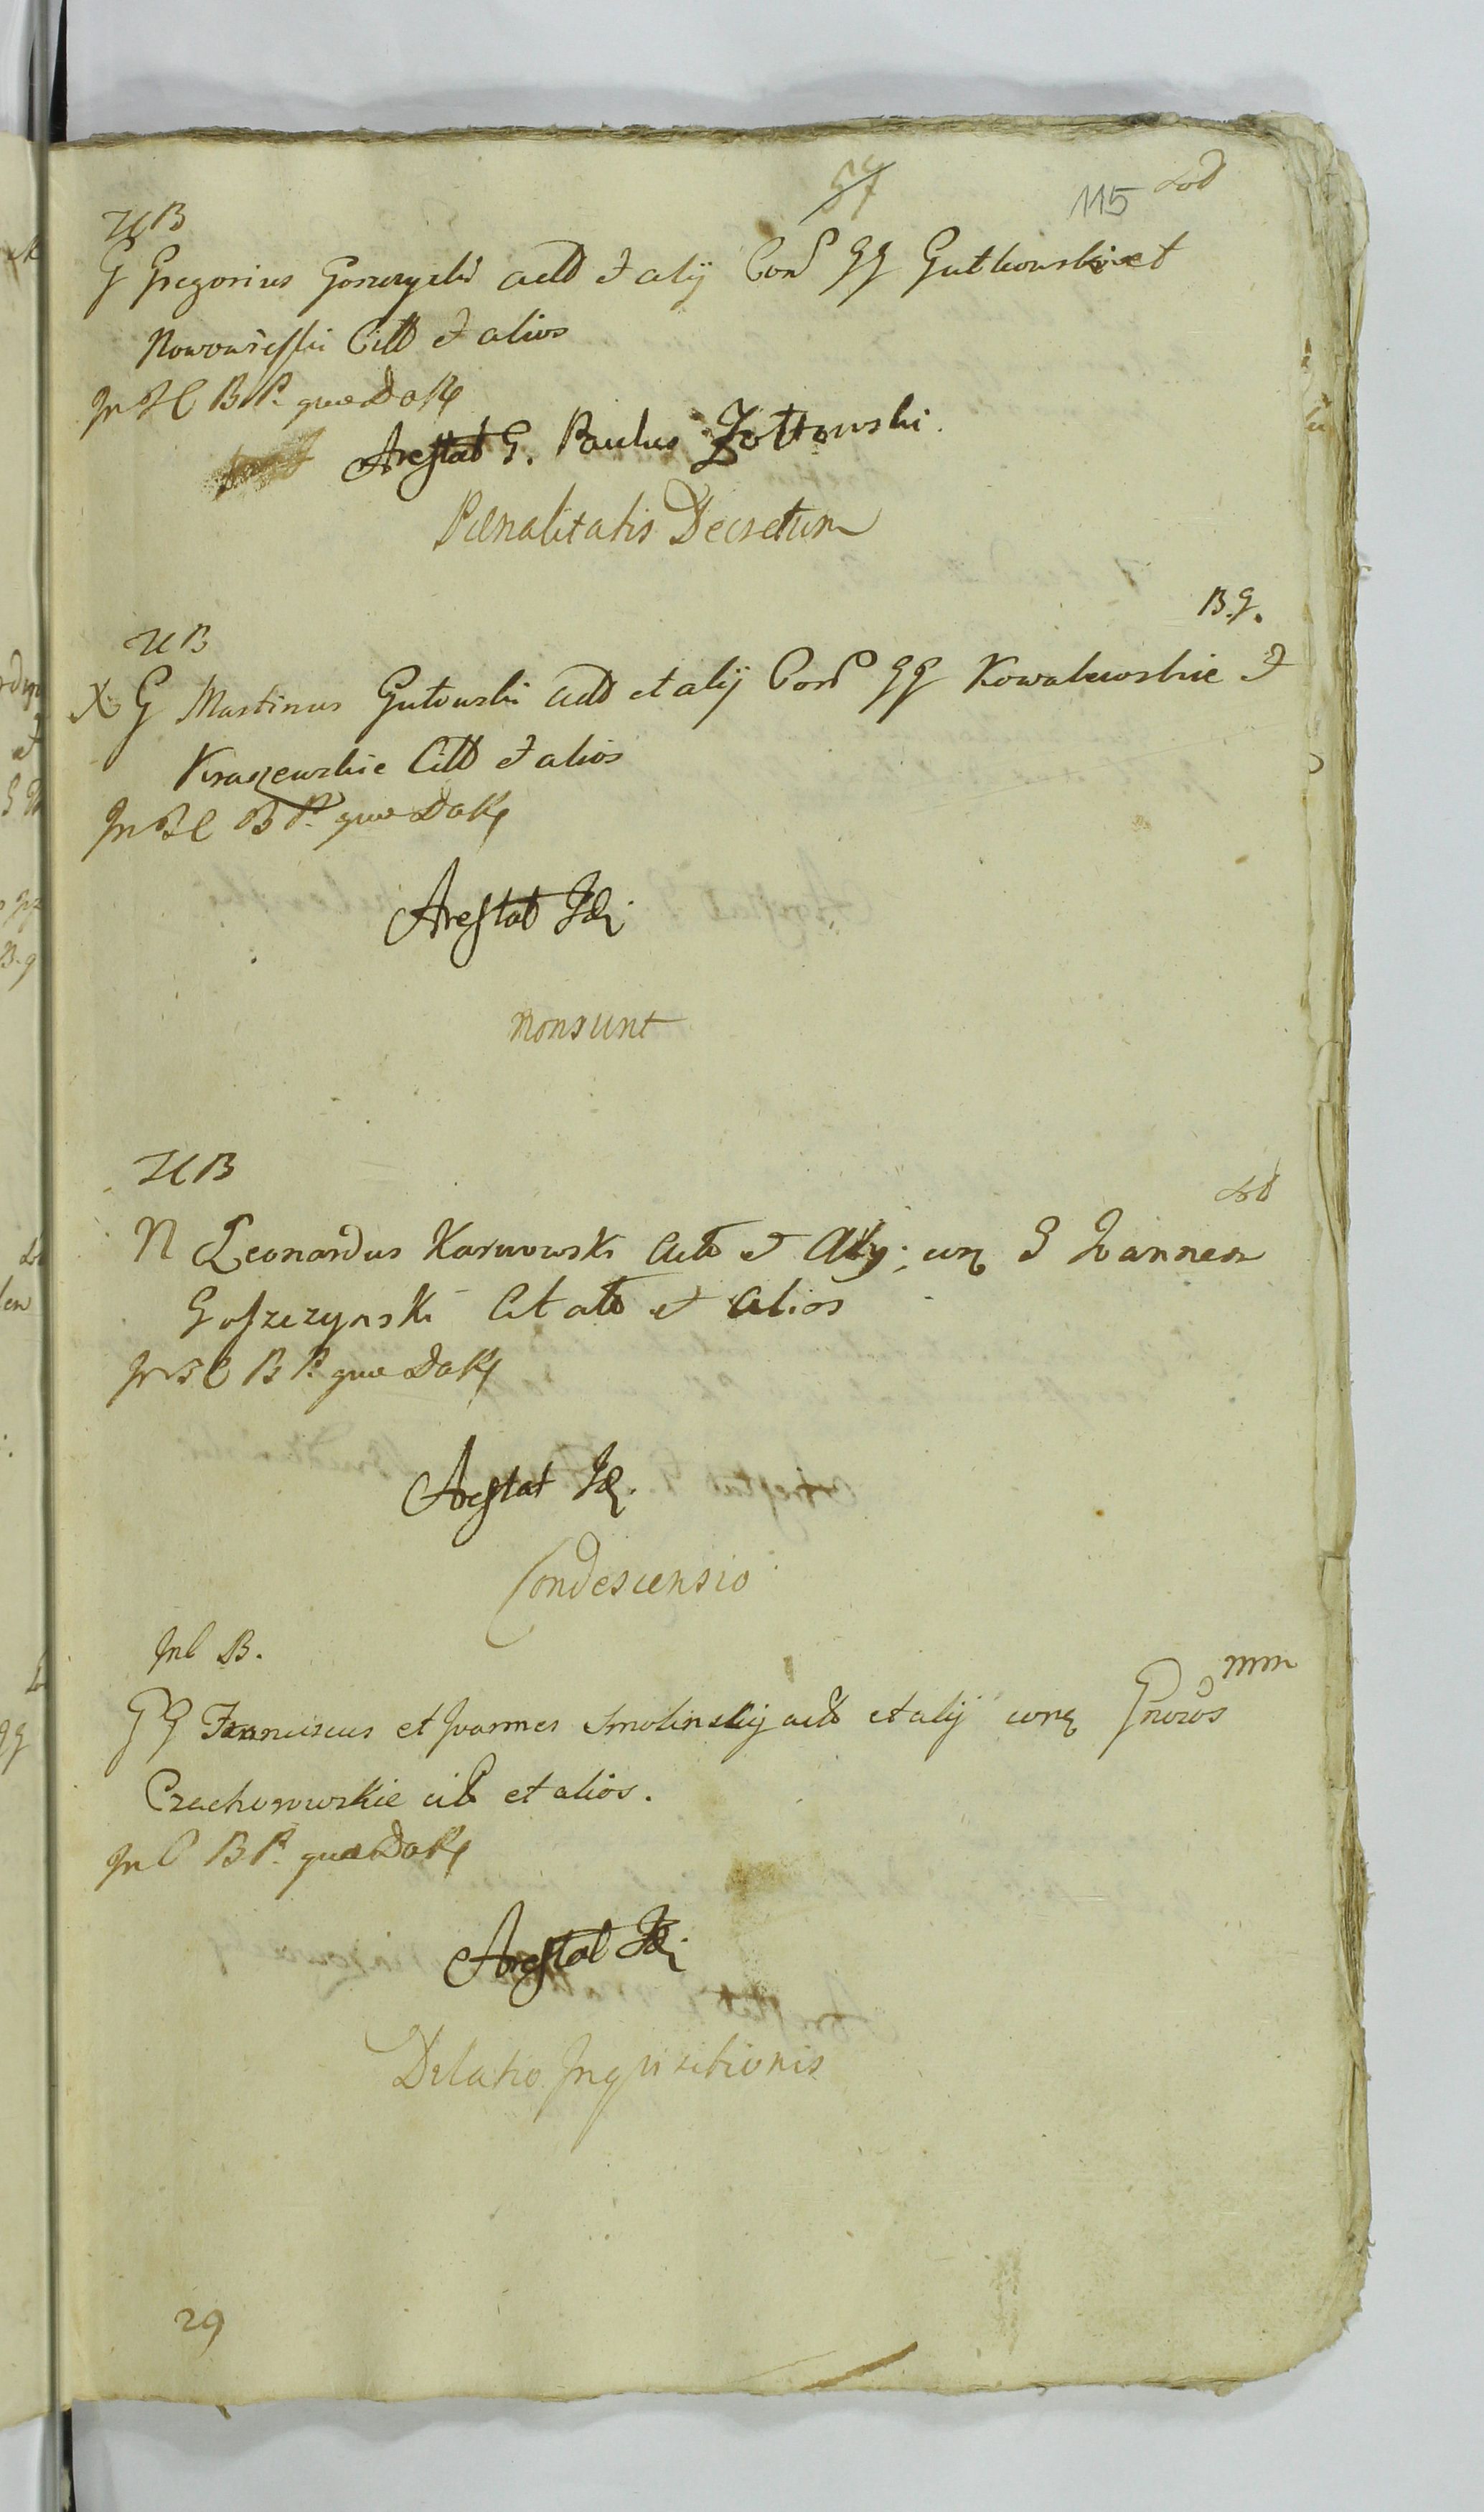 57
115
Lod
U B
G Gregorius Gorzycki actt et alij Con GG Gutkowskie et
Nowowieyski Citt et alios
B P. quæ
Arestat G. Paulus Zołtowski.
Pœnalitatis Decretum
B.g.
U B
X G Martinus Gutowski actt et alij Con GG Kowalewskie et
Kraszewskie Citt et alios
B P. quæ
Arestat Id.
Non sunt
U B
Lod
N Leonardus Karwowski Actt et Alij con G Joannem
Goszczynski Citatt et Alios
B P. quæ
Arestat Id.
Condescensio
Inl B.
mm
GG Franciscus et Joannes Smolinskij actt et alij con Gnosos
Czachorowskie cit et alios.
B P. quæ
Arestat Id.
Delatio Inquisitionis
29